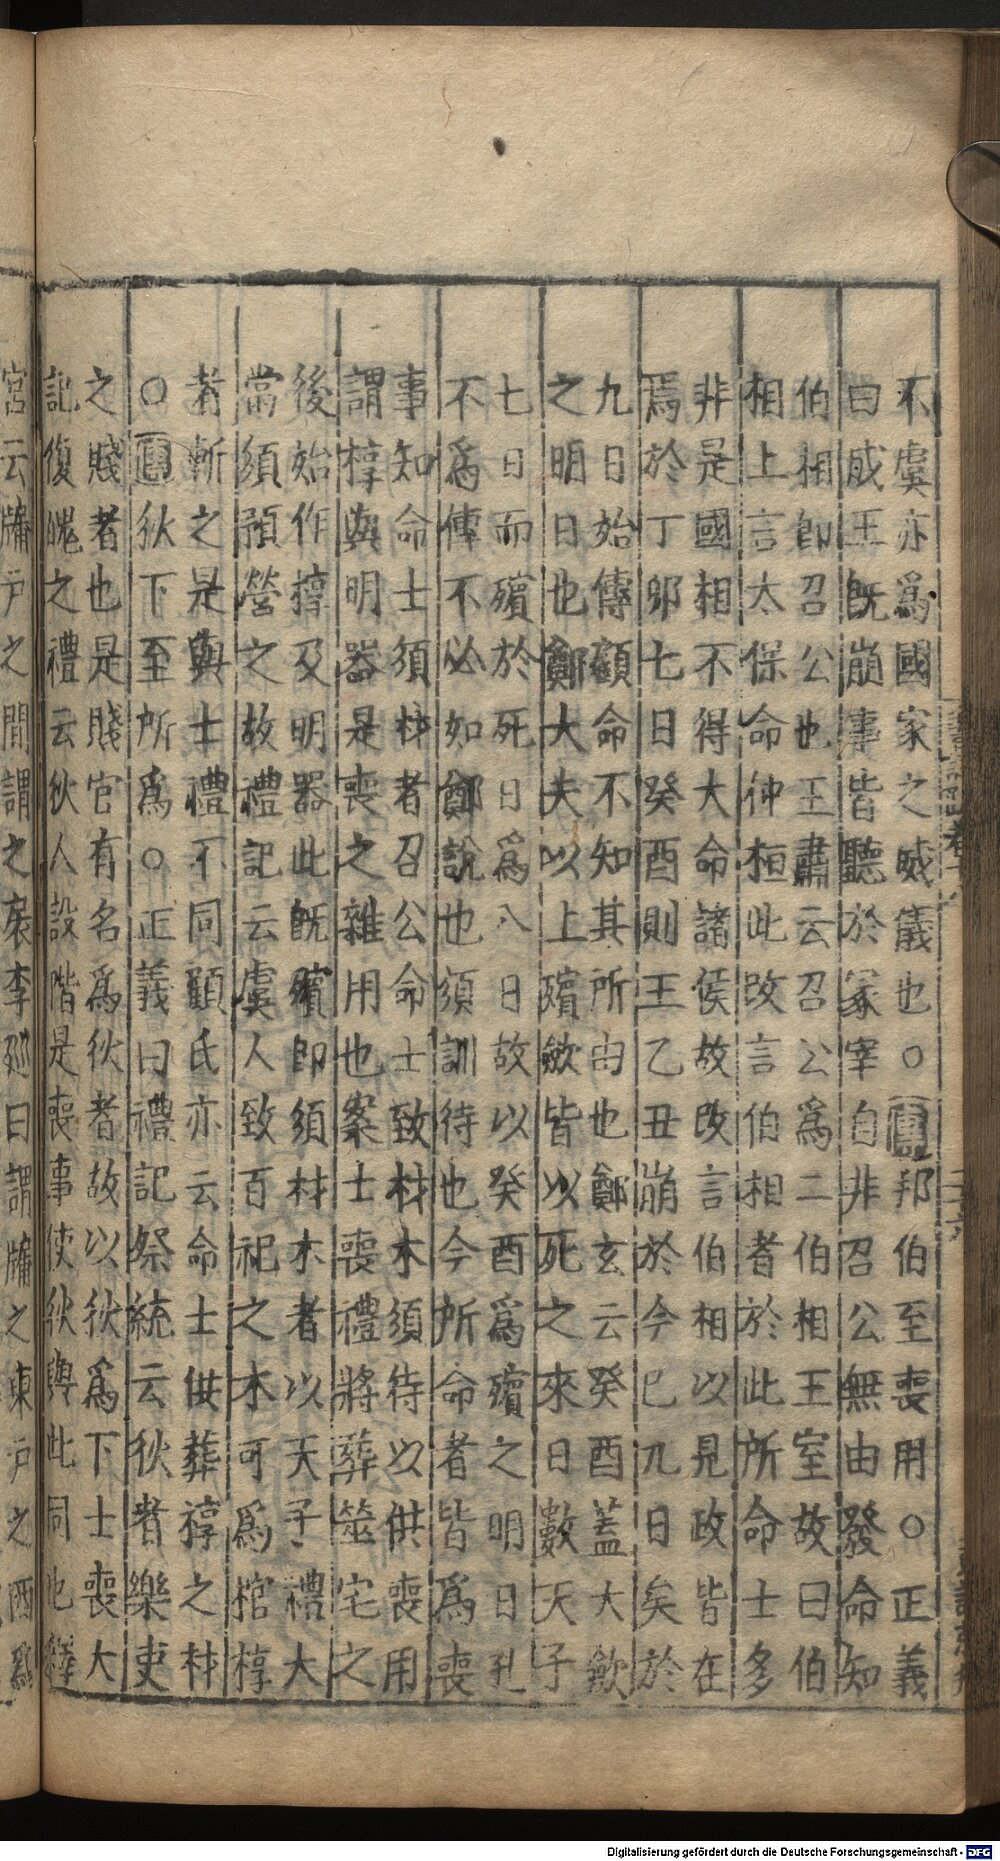 不虞亦爲國家之威儀也○傳邦伯至喪用○正義
曰成王既崩事皆聽於冢宰自非召公無由發命知
伯相即召公也王肅云召公爲二伯相王室故曰伯
相上言太保命仲桓此改言伯相者於此所命士多
非是國相不得大命諸侯故改言伯相以見政皆在
焉於丁卯七日癸酉則王乙丑崩於今已九日矣於
九日始傳顧命不知其所由也鄭玄云癸酉蓋大斂
之明日也鄭大夫以上殯斂皆以死之來日數天子
七日而殯於死日爲八日故以癸酉爲殯之明日孔
不爲傳不必如鄭說也須訓待也今所命者皆爲喪
事知命士須材者召公命士致材木須待以供喪用
謂椁與明器是喪之雜用也案士喪禮將葬筮宅之
後始作椁及明器此既殯即須材木者以天子禮大
當須預營之故禮記云虞人致百祀之木可爲棺椁
者斬之是與士禮不同顧氏亦云命士供葬椁之材
○傳狄下至所爲○正義曰禮記祭統云狄者樂吏
之賤者也是賤官有名爲狄者故以狄爲下士喪大
記復魄之禮云狄人設階是喪事使狄與此同也釋
宮云牖戶之間謂之扆李廵曰謂牖之東戶之西爲
Digitalisierung gefördert durch die Deutsche Forschungsgemeinschaft - DFG